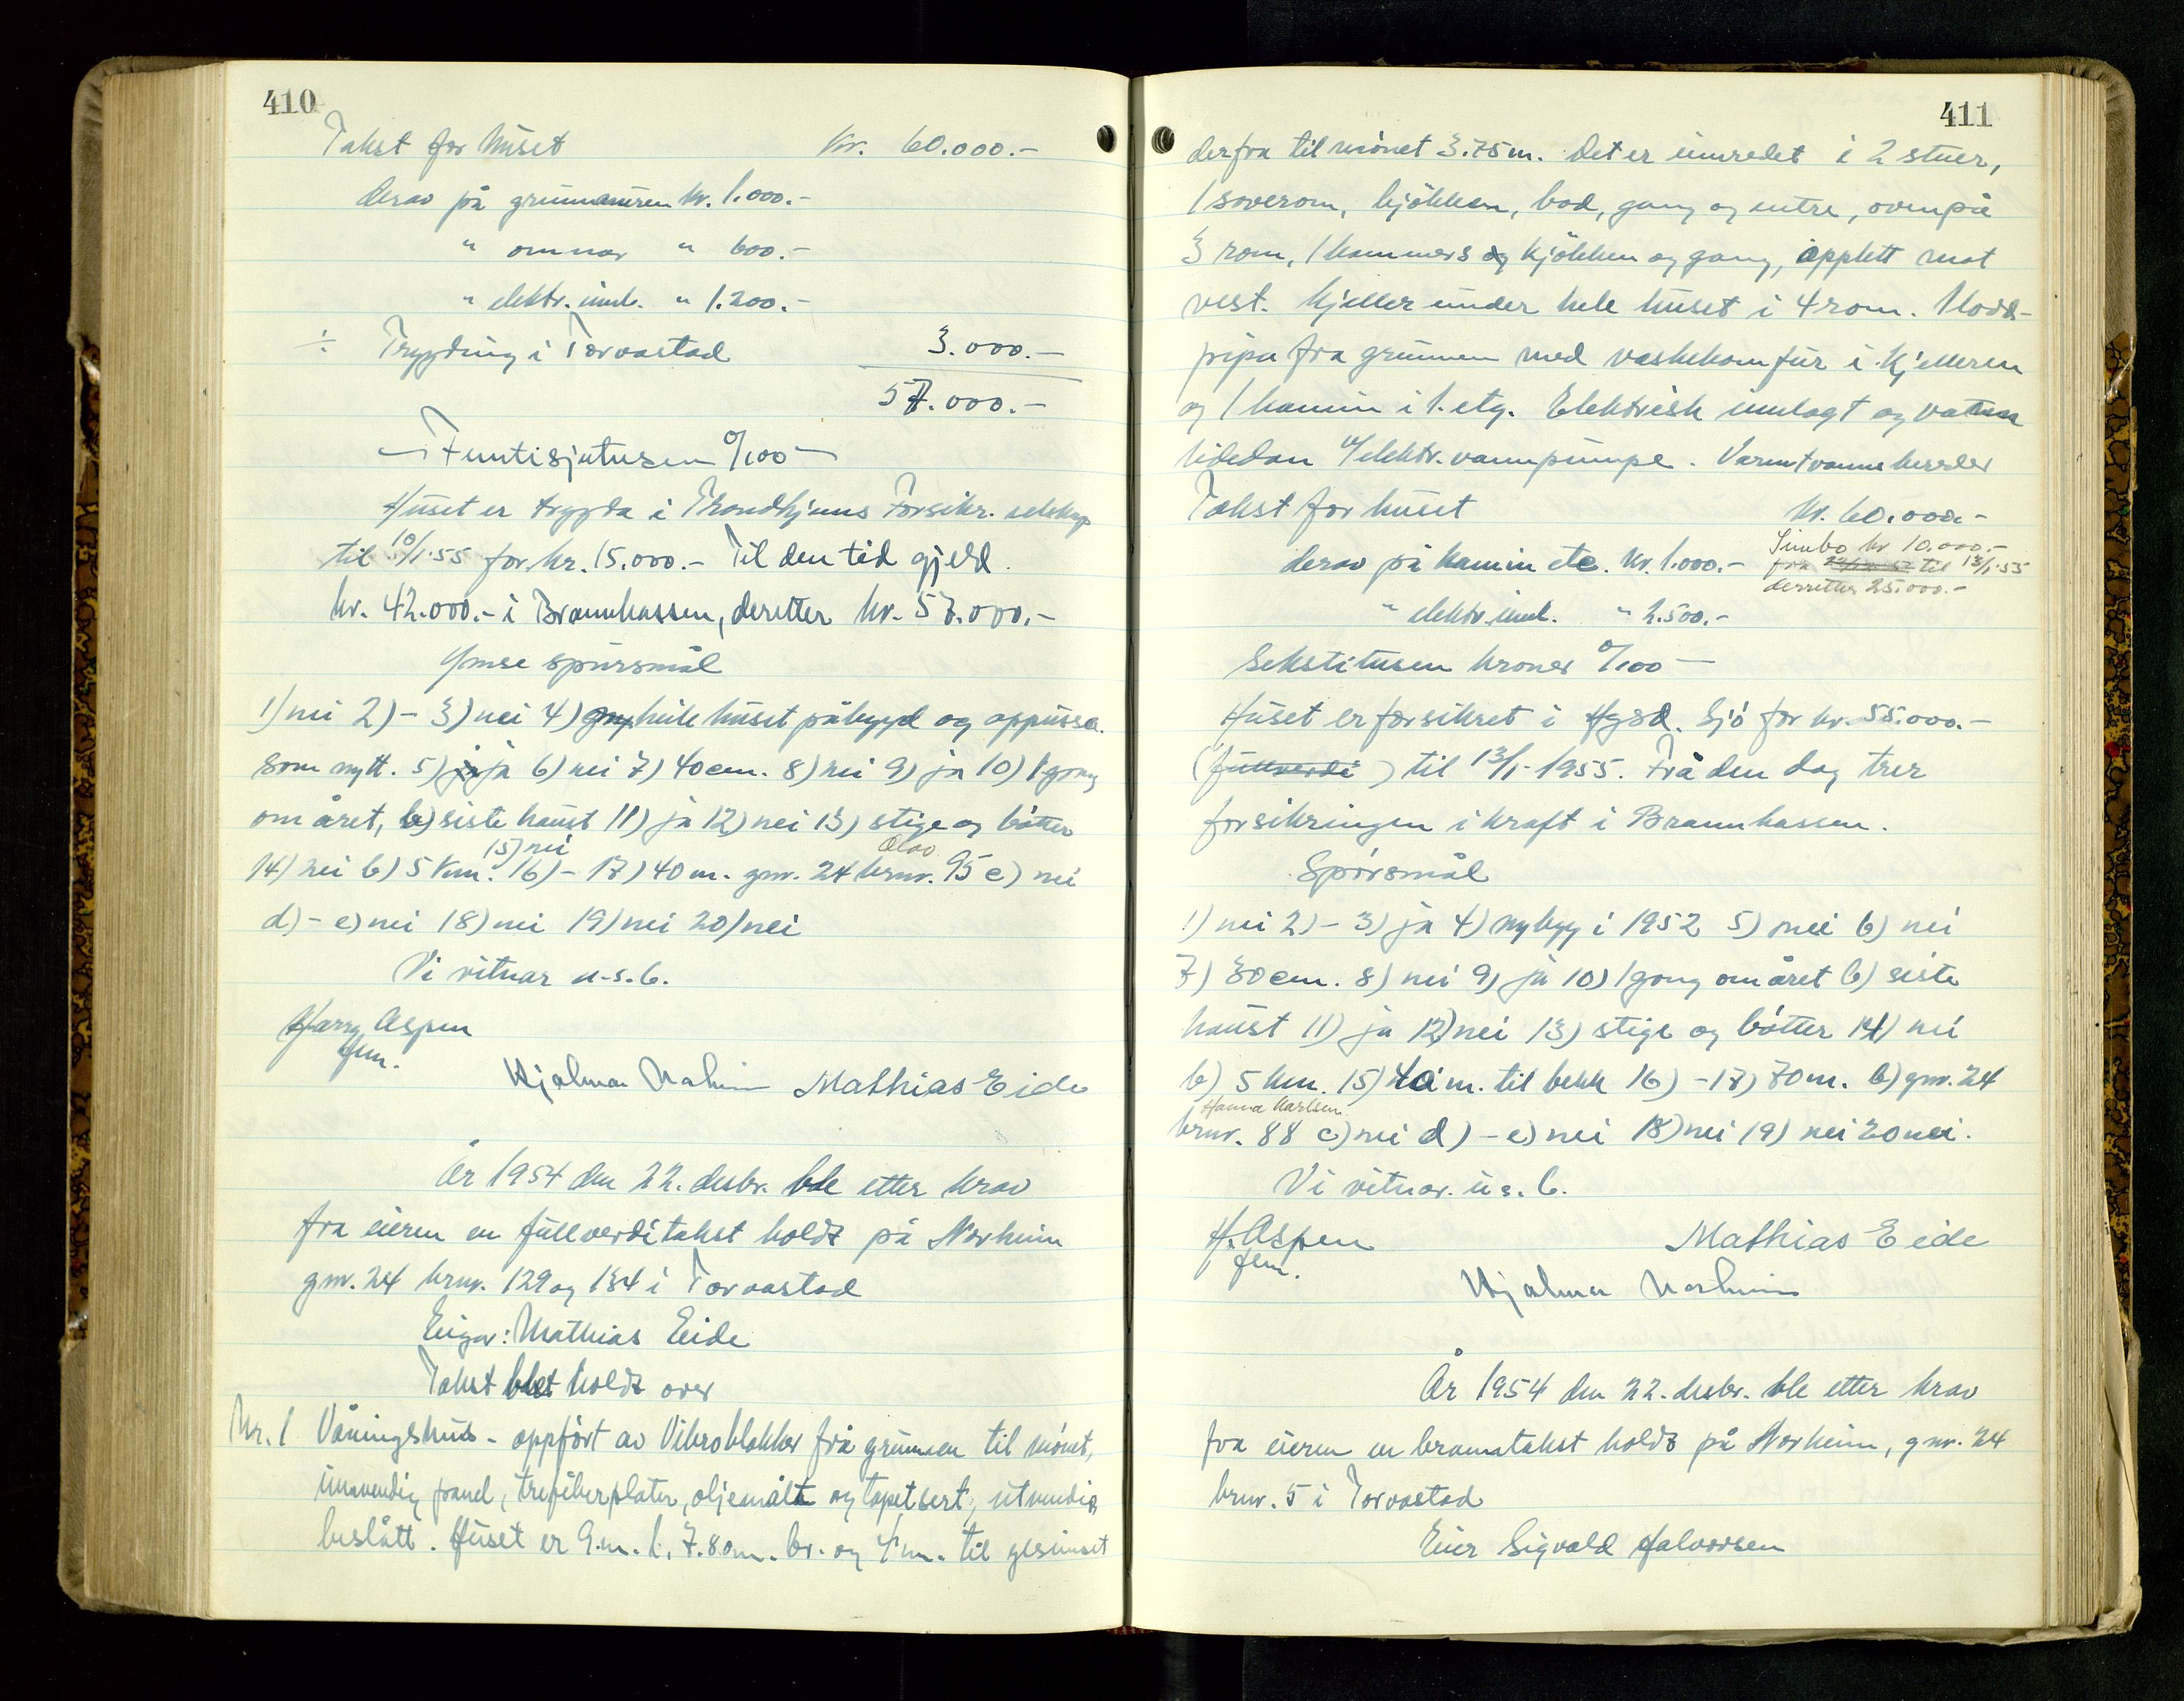 410
Takst for huset Kr. 60.000.-
derav på grunnmuren kr. 1.000.-
" omnar " 600.-
" elektr. innl. " 1.200.-
÷ Trygding i Torvastad 3.000.-
57.000.-
- Femtisjutusen 0/100 -
Huset er trygda i Trondhjems Forsikr. selskap
til 10/1-55 for kr. 15.000.- Til den tid gjeld
kr. 42.000.- i Brannkassen, deretter kr. 57.000.-
Ymse spursmål
1) nei 2) - 3) nei 4) heile huset påbygd og oppussa
som nytt. 5) ja 6) nei 7) 40 cm. 8) nei 9) ja 10) 1 gong
om året, b) siste haust 11) ja 12) nei 13) stige og bøtter
15) nei Olav
14) nei b) 5 km. 16) - 17) 40 m. gnr. 24 brnr. 95 c) nei
d) - e) nei 18) nei 19) nei 20) nei
Vi vitnar u.s.b.
Harry Aspen
fem.
Hjalmar Norheim Mathias Eide
År 1954 den 22. desbr. ble etter krav
fra eieren en fullverditakst holdt på Norheim
gnr. 24 brnr. 129 og 134 i Torvastad
Eigar: Mathias Eide
Takst blet holdt over
Nr. 1 Våningshus - oppført av Vibroblokker frå grunnen til mønet,
innvendig panel, trefiberplater, oljemålt og tapetsert, utvendig
beslått. Huset er 9.m. l. 7.80m. br. og 4 m. til gesimset
411
derfra til mønet 3.75 m. Det er innredet i 2 stuer,
1 soverom, kjøkken, bod, gang og entre, ovenpå
3 rom, 1 kammers og kjøkken og gang, opplett mot
vest. Kjeller under hele huset i 4 rom. 1 lodd-
pipa fra grunnen med vaskekomfur i kjelleren
og 1 kamin i 1. etg. Elektrisk innlagt og vatten
likedan m/elektr. vannpumpe. Varmtvannsbereder
Takst for huset kr. 60.000.-
Simbo kr 10.000.-
derav på kamin etc. kr. 1.000.- fra til 13/1-55
deretter 25.000.-
" elektr. innl. " 2.500.-
Sekstitusen kroner 0/100 -
Huset er forsikret i Hgsd. Sjø for kr. 55.000.-
(fullverdi) til 13/1-1955. Frå den dag trer
forsikringen i kraft i Brannkassen.
Spørsmål
1) nei 2) - 3) ja 4) nybygg i 1952 5) nei 6) nei
7) 30 cm. 8) nei 9) ja 10) 1 gong om året b) siste
haust 11) ja 12) nei 13) stige og bøtter 14) nei
b) 5 km. 15) 40 m. til bekk 16) - 17) 70 m. b) gnr. 24
Hanna Karlsen
brnr. 88 c) nei d) - e) nei 18) nei 19) nei 20 nei.
Vi vitnar. u.s.b.
H. Aspen Mathias Eide
fem.
Hjalmar Norheim
År 1954 den 22. desbr. ble etter krav
fra eieren en branntakst holdt på Norheim, gnr. 24
brnr. 5 i Torvastad
Eier Sigvald Halvorsen